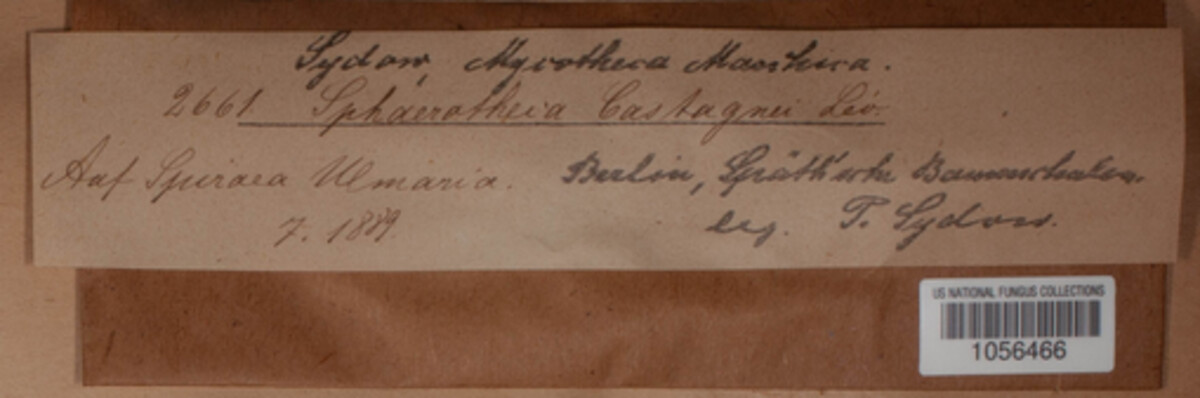 Sydow, Mycotheca Marchica.
2661 Sphaerotheca Castagnei Lév.
Auf Spiraea Ulmaria. Berlin, Späth'sche Baumschulen.
7. 1889. leg. P. Sydow.
US NATIONAL FUNGUS COLLECTIONS
1056466